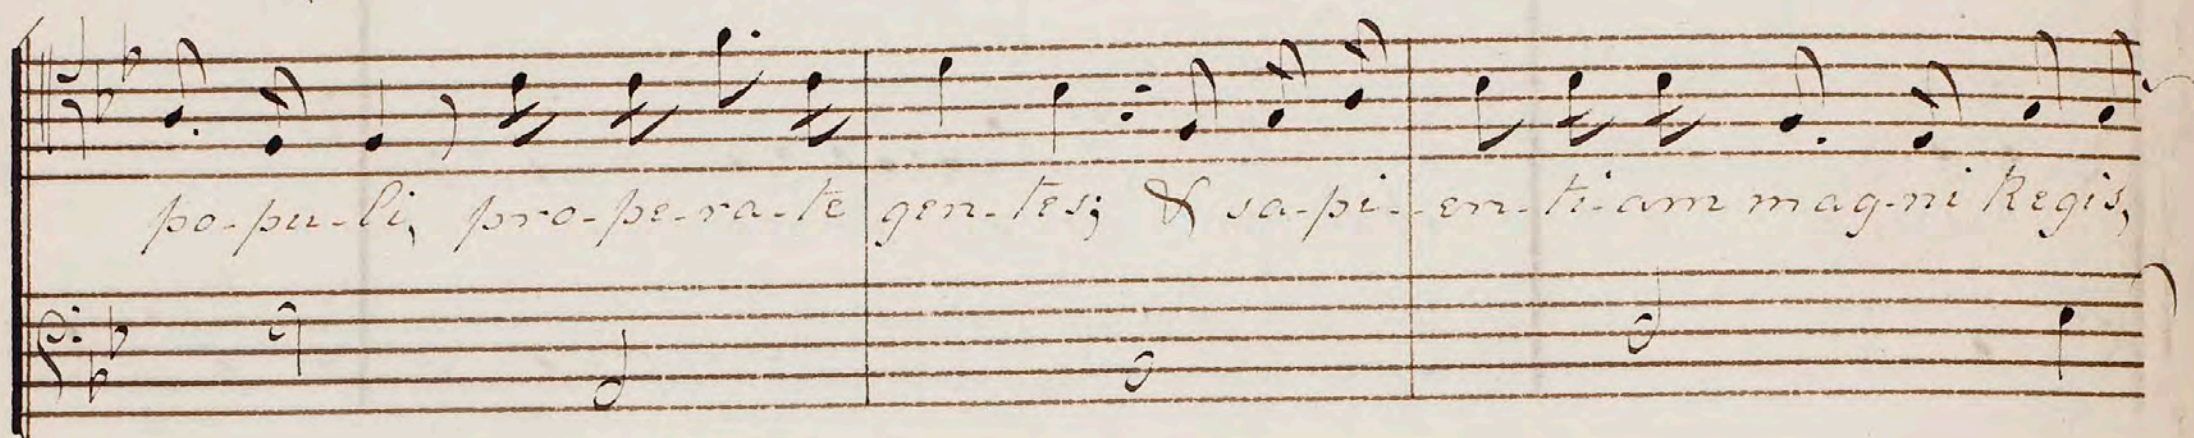 po-pu-li, pro-pe-ra-te gen-tes; & sa-pi-en-ti-am mag-ni Regis,